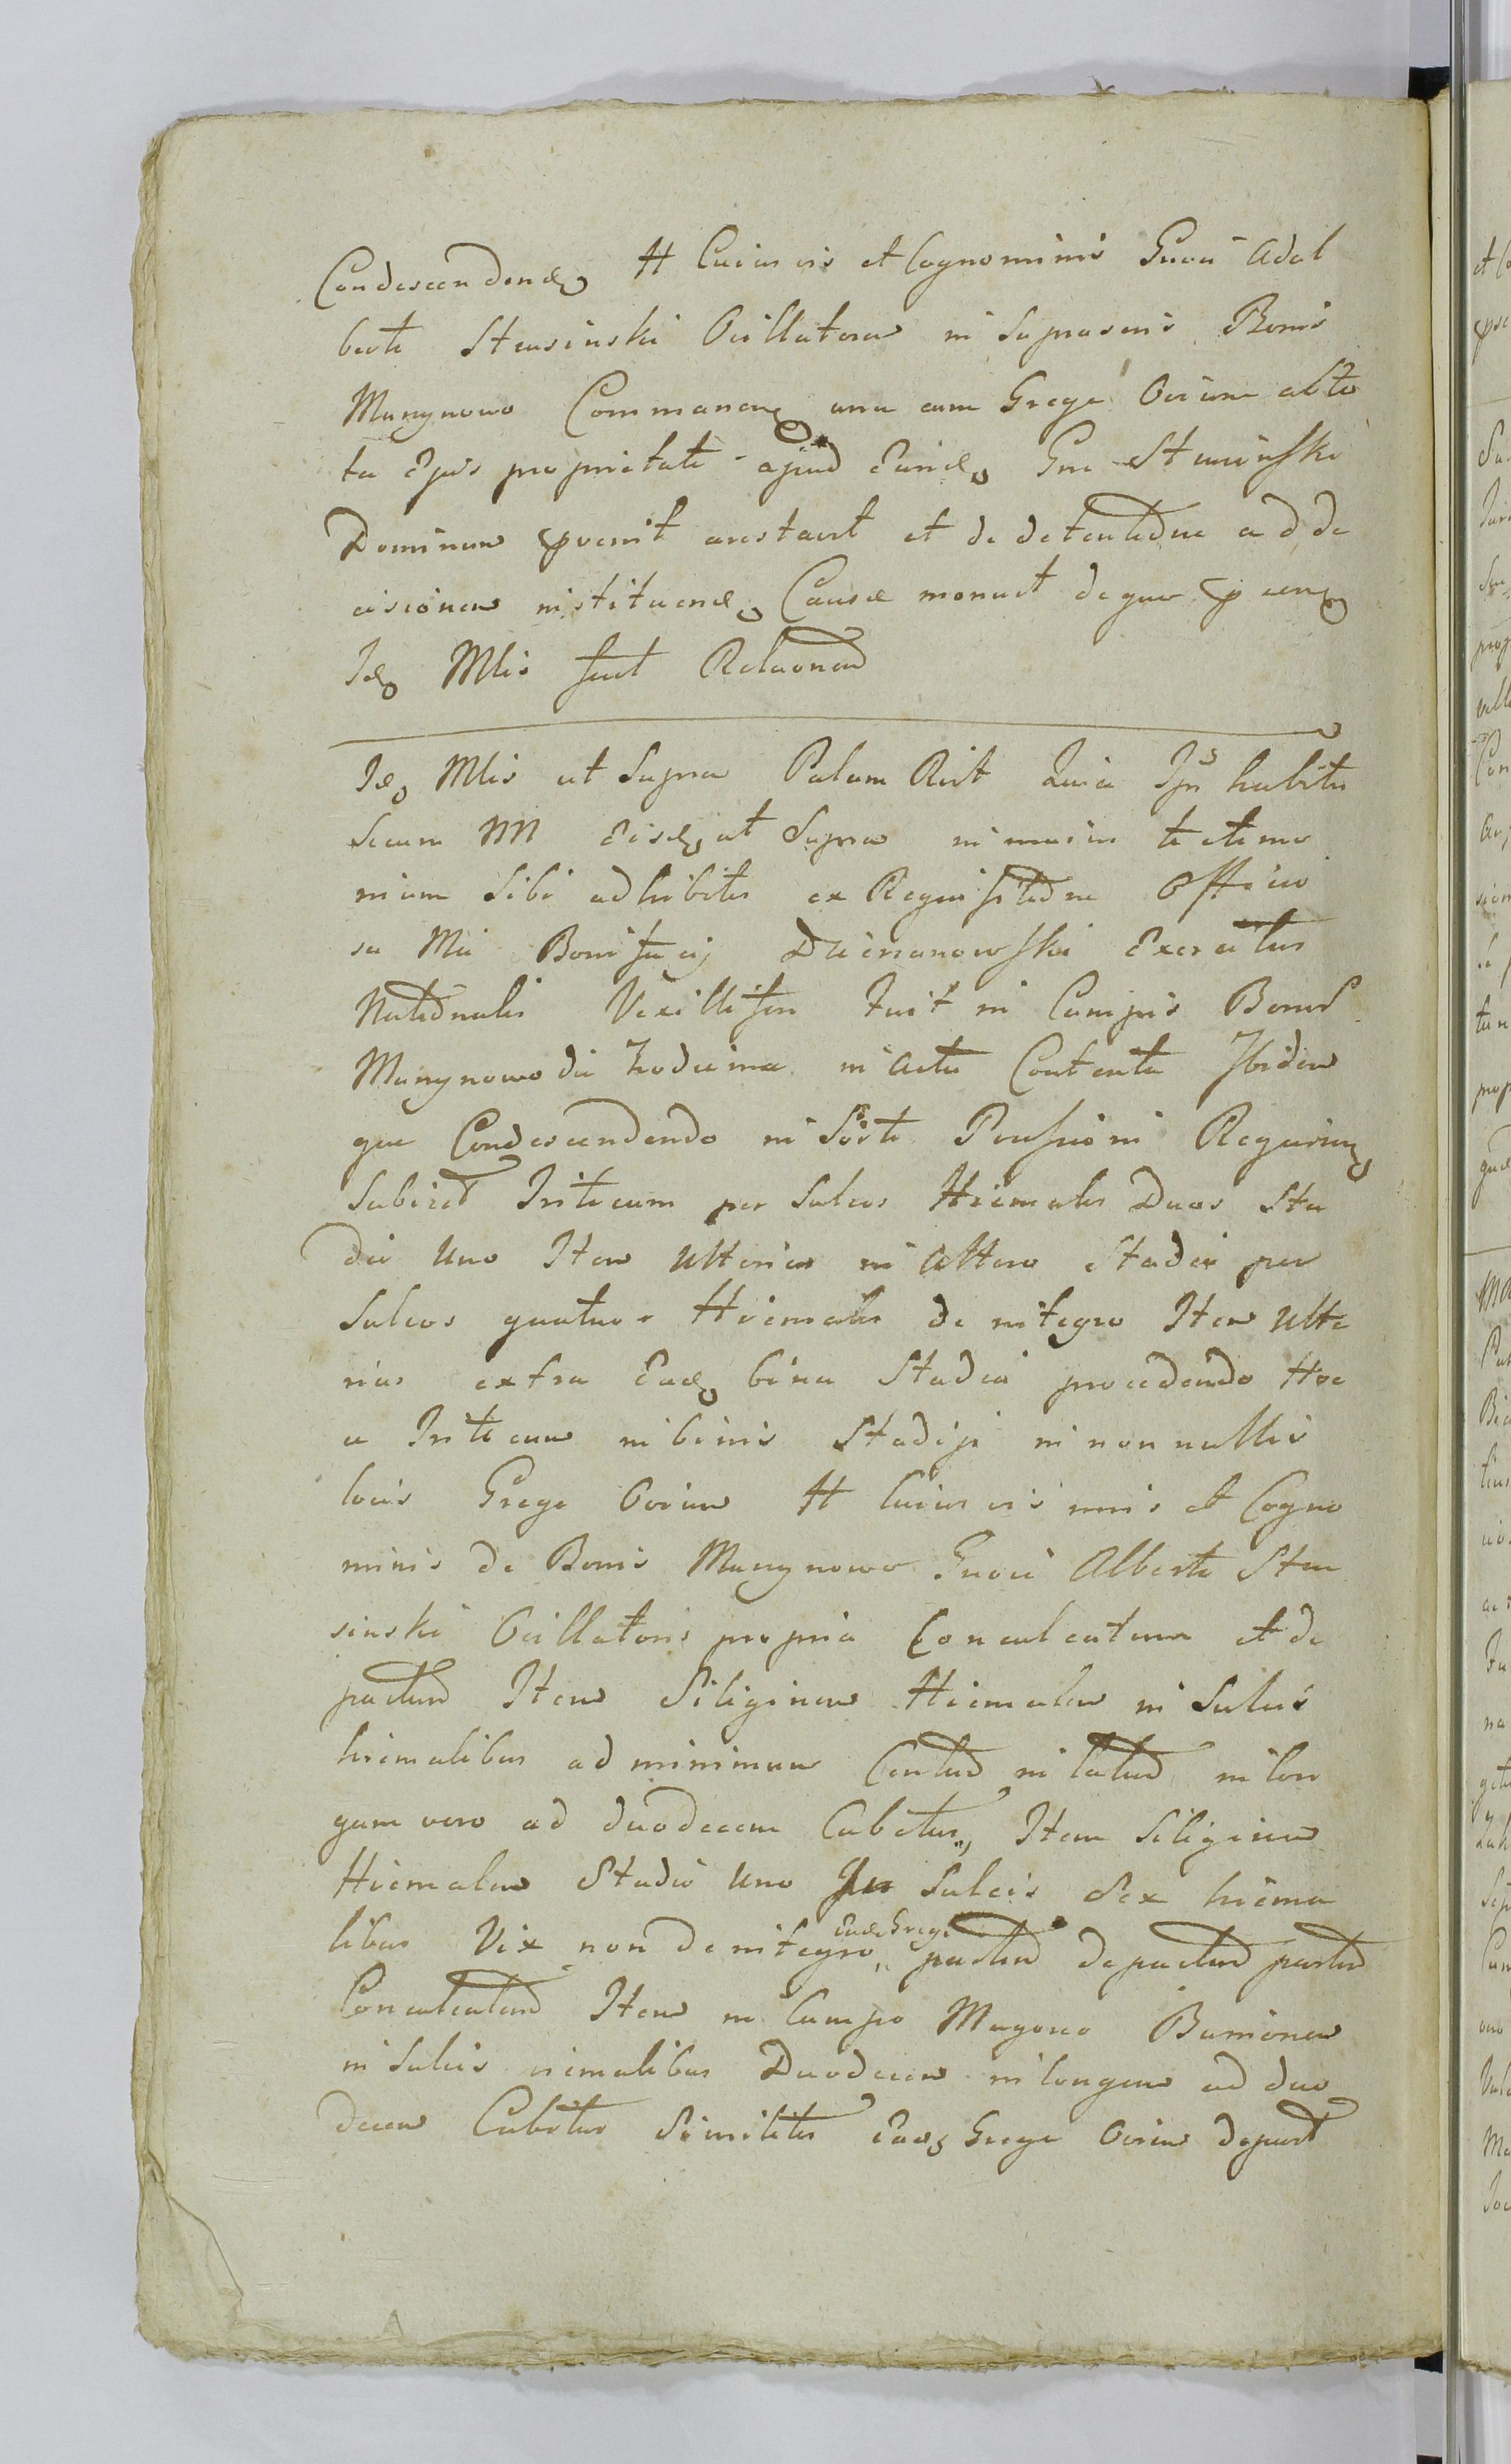 Condescenden. H Cuiusvis et Cognominis Gnosi Adal
berti Stensinski Ovillatorem in suprascris Bonis
Manynowo Commanen. una cum Grege Ovium absto
ta Ejus proprietate apud Eund. Gm Stensinski
Dominum pvenit arestavit et de detentõne ad de
cisionem instituend. Causæ monuit de quo p cen.
Id. Mlis fecit Relãonem
Id. Mlis ut Supra Palam Rvit Quia Ips habitis
secum NN Eisd. ut Supra in maius testimo
nium Sibi adhibitis ex Requisitõne Officio
sa Mci Bonifacij Dzierzanowski Exercitus
Natõnalis Vexilliferi Fuit in Campis Bonor
Manynowo die hodierna in Actu Contenta Ibidem
que Condescendendo in Sorte Possessioni Requiren.
Subiect Triticum per Sulcos Hiemales Duos Sta
dii Uno Item Ulterius in Altero Stadii per
Sulcos quatuor Hiemales de integro Item Ulte
rius extra Ead. bina Stadia procedendo Hoc
ce Triticum in binis Stadijs in nonnullis
locis Grege Ovium H Cuiusvis nnis et Cogno
minis de Bonis Manynowo Gnosi Alberti Sten
sinski Ovillatoris propria Conculcatum et de
pactum Item Siliginem Hiemalem in Sulcis
hiemalibus ad minimum Centum in latum in lon
gum vero ad duodecem Cubitus, Item Siliginem
Hiemalem Stadio Uno In Sulcis Sex hiema
libus Vix non de integro, Ead. Grege partim depactum partim
Conculcatum Item in Campo Magono Bamionem
in Sulcis iemalibus Duodecem in longum ad duo
decem Cubitus Similiter Ead. Grege Ovium depast